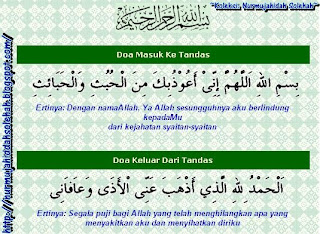 "Koleksi Nurmujahidah Solehah"
بسم الله الرحمن الرحيم
Doa Masuk Ke Tandas
بِسْمِ اللهِ اَللّٰهُمَّ اِنِّىْ اَعُوْذُبِكَ مِنَ الْخُبُثِ وَالْخَبَائِثِ
Ertinya: Dengan namaAllah. Ya Allah sesungguhnya aku berlindung
kepadaMu
dari kejahatan syaitan-syaitan
Doa Keluar Dari Tandas
اَلْحَمْدُ لِلّٰهِ الَّذِيْ اَذْهَبَ عَنِّى الْاَذَى وَعَافَانِى
Ertinya: Segala puji bagi Allah yang telah menghilangkan apa yang
menyakitkan aku dan menyihatkan diriku
http://nurmujahiddahsolehah.blogspot.com/